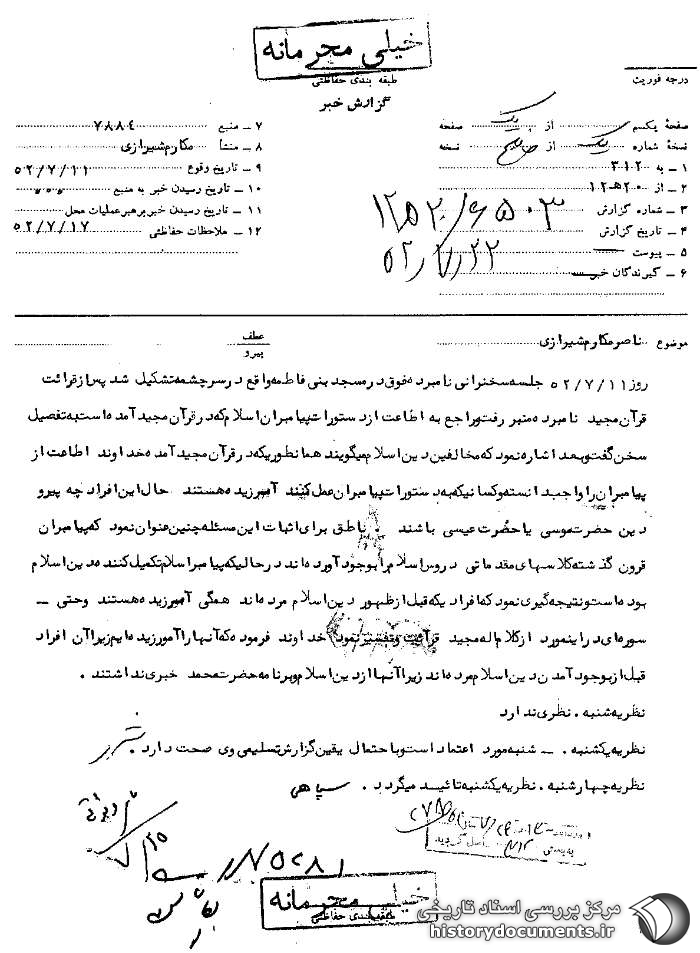 خیلی محرمانه
طبقه بندی حفاظتی
گزارش خبر
درجه فوریت
صفحهٔ یکسم یک از یک صفحه
نسخهٔ شماره یک از نسخه
۱ – به ۳۱۲
۲ – از ۲۰هـ۱۲
۳ – شماره گزارش ۱۲۵۲۰/۶۵۰۳
۴ – تاریخ گزارش ۵۲/۷/۲۲
۵ – پیوست
۶ – گیرندگان خبر
۷ – منبع ۷۸۸٤
۸ – منشأ مکارم شیرازی
۹ – تاریخ وقوع ۵۲/۷/۱۱
۱۰ – تاریخ رسیدن خبر به منبع ۵۵۵
۱۱ – تاریخ رسیدن خبر برهبر عملیات محل
۱۲ – ملاحظات حفاظتی ۵۲/۷/۱۷
موضوع ناصر مکارم شیرازی
عطف
پیرو
روز ۵۲/۷/۱۱ جلسه سخنرانی نامبرده فوق در مسجد بنی فاطمه واقع در سرچشمه تشکیل شد پس از قرائت
قرآن مجید نامبرده منبر رفت و راجع به اطاعت از دستورات پیامبران اسلام که در قرآن مجید آمده است به تفصیل
سخن گفت و بعد اشاره نمود که مخالفین دین اسلام میگویند همانطوریکه در قرآن مجید آمده خداوند اطاعت از
پیامبران را واجب دانسته و کسانیکه به دستورات پیامبران عمل کنند آمرزیده هستند حال این افراد چه پیرو
دین حضرت موسی یا حضرت عیسی باشند . ناطق برای اثبات این مسئله چنین عنوان نمود که پیامبران
قرون گذشته کلاسهای مقدماتی دروس اسلام را بوجود آورده اند در حالیکه پیامبر اسلام تکمیل کننده دین اسلام
بوده است و نتیجه گیری نمود که افرادیکه قبل از ظهور دین اسلام مرده اند همگی آمرزیده هستند وحتی –
سوره ای در اینمورد از کلام اله مجید قرائت و تفسیر نمود خداوند فرموده که آنها را آمرزیده ایم زیرا آن افراد
قبل از بوجود آمدن دین اسلام مرده اند زیرا آنها از دین اسلام و برنامه حضرت محمد خبری نداشتند .
نظریه شنبه . نظری ندارد
نظریه یکشنبه . – شنبه مورد اعتماد است و با احتمال یقین گزارش تسلیمی وی صحت دارد .
نظریه چهارشنبه . نظریه یکشنبه تائید میگردد . سپاهی
خیلی محرمانه
طبقه بندی حفاظتی
مرکز بررسی اسناد تاریخی
historydocuments.ir